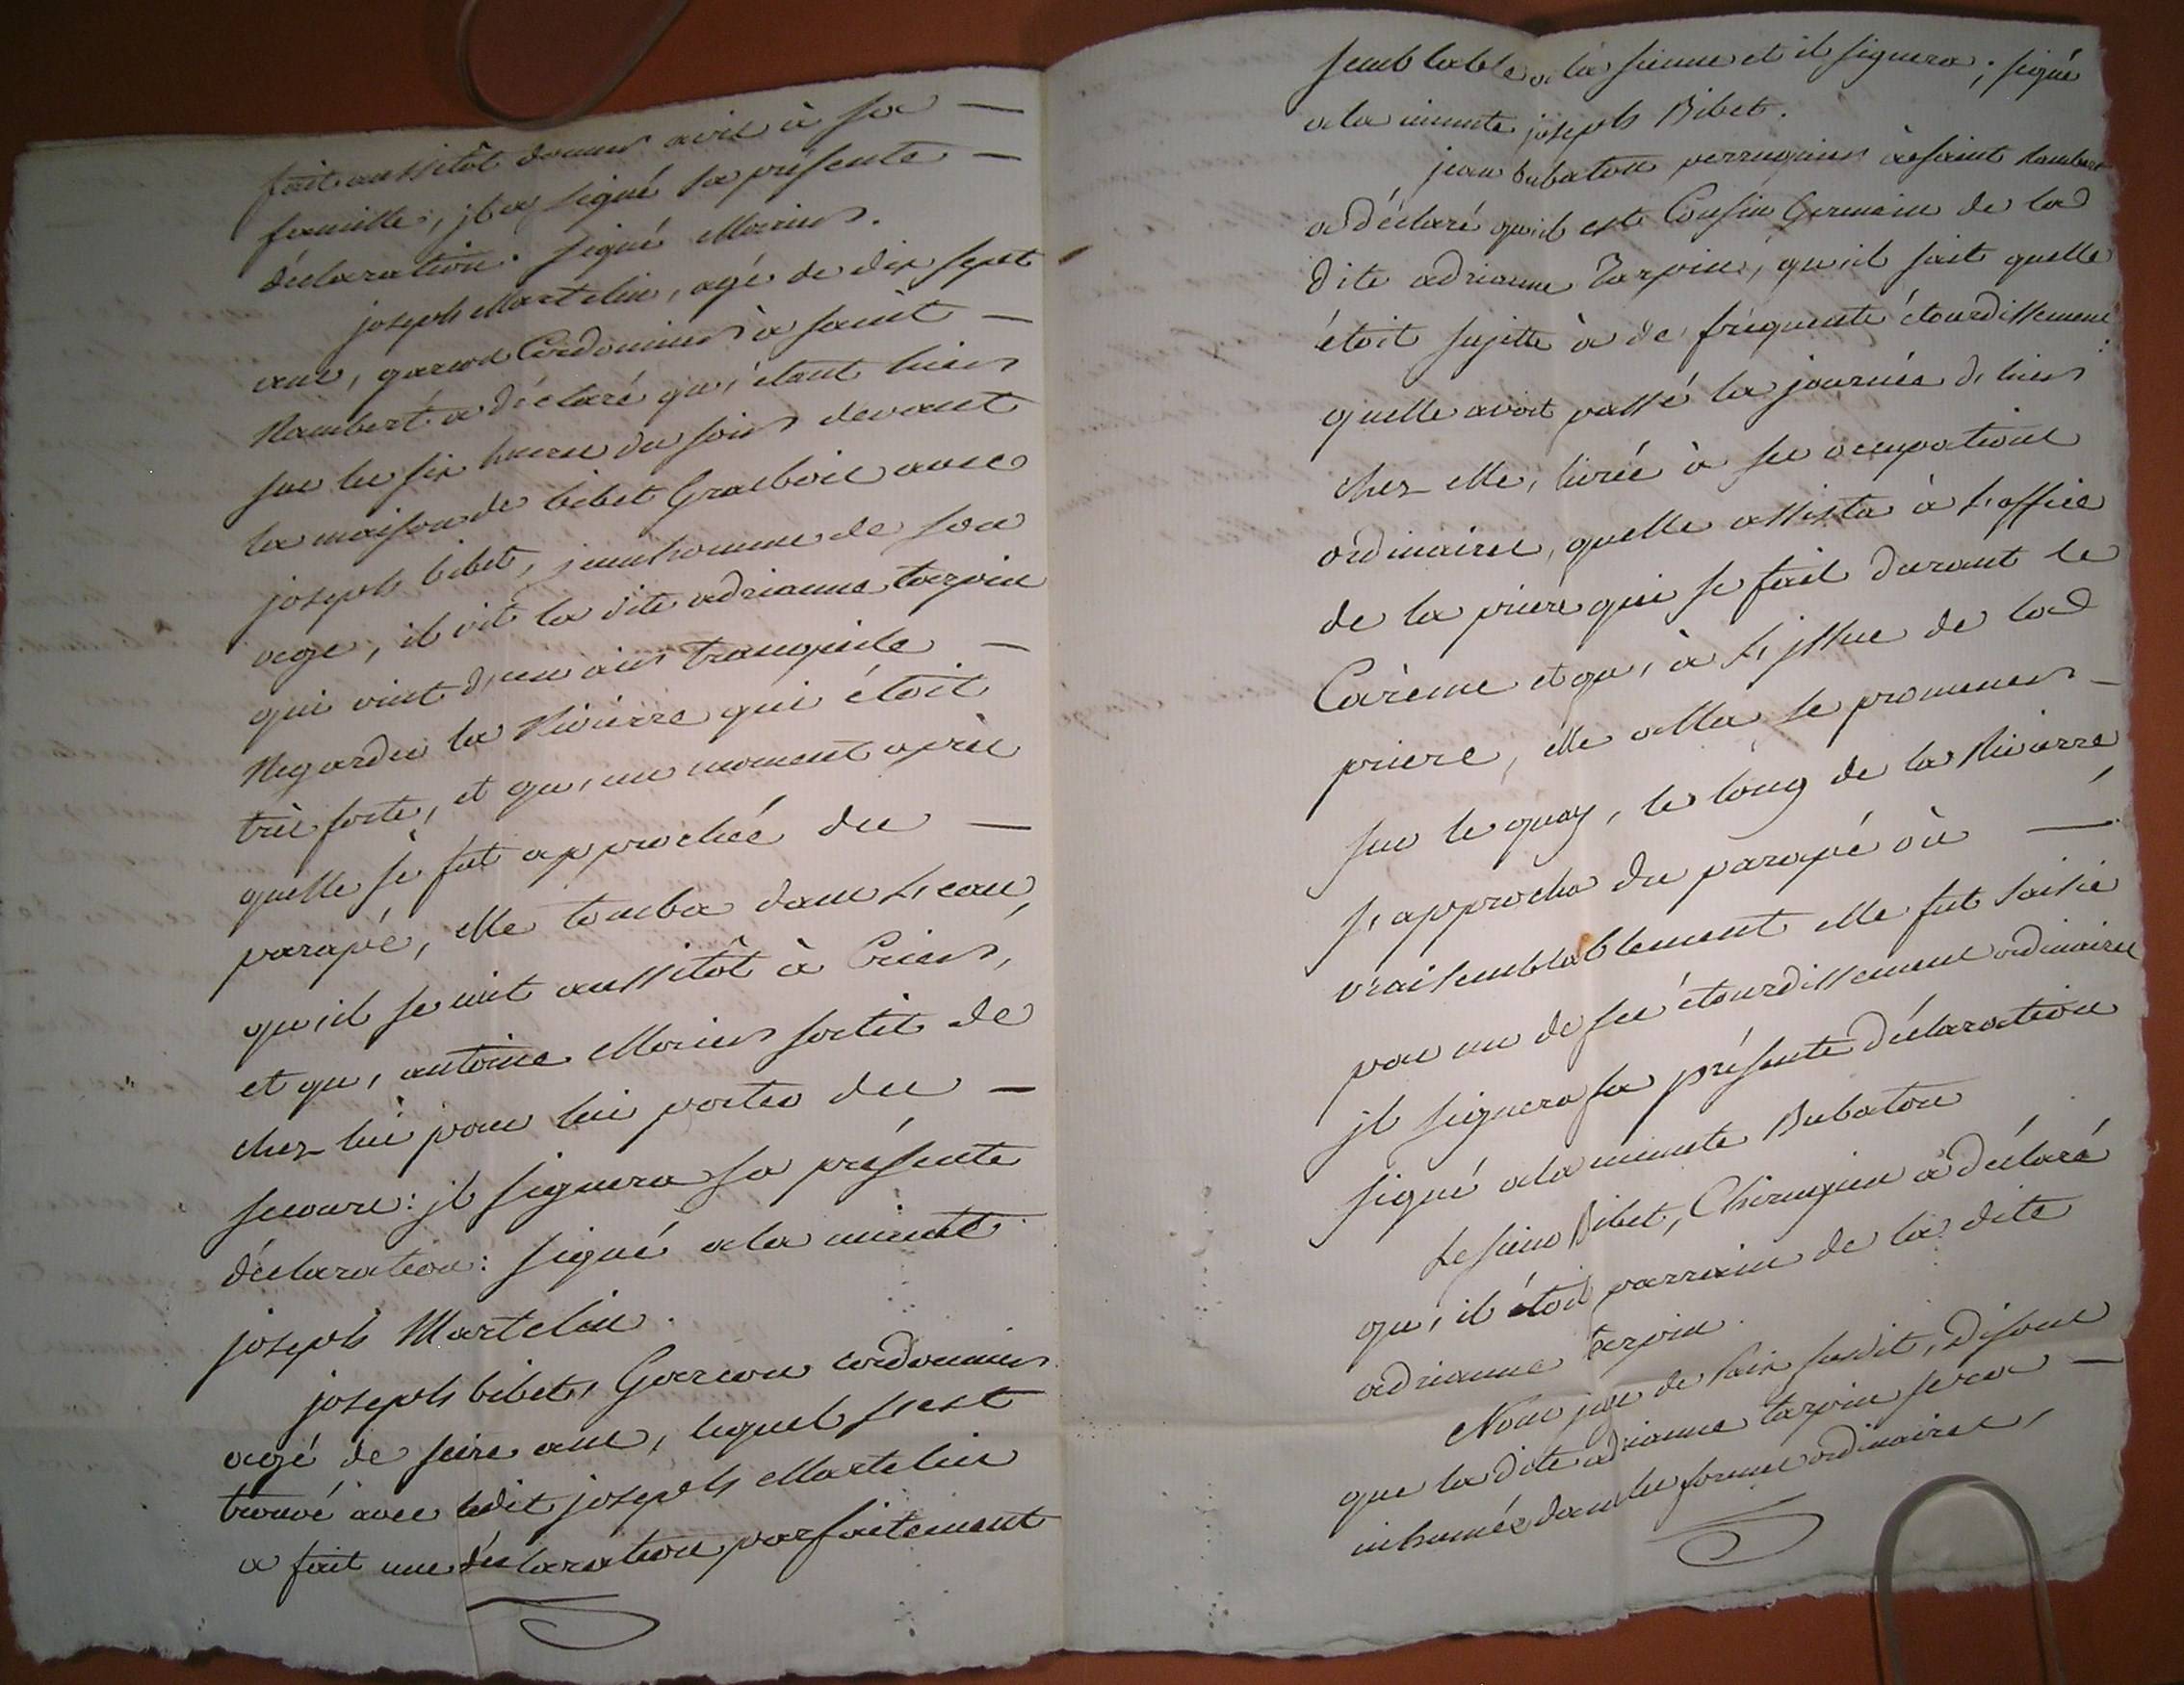 fait aussitôt donner avis à sa —
famille, jl a signé sa présente —
déclaration. signé Morier.
joseph Martelin, agé de dix sept
ans, garcon Cordonnier à saint —
Rambert a déclaré qu'étant hier
sur les six heures du soir devant
la maison de bibet Grasbois avec
joseph bibet, jeunhomme de son
age, il vit la dite adrianne tarpin
qui vint d'un air tranquile —
Regarder la Rivierre qui étoit
très forte, et qu'un moment après
quelle se fut approchée du —
parapé, elle tomba dans L'eau,
qu'il se mit aussitôt à Crier,
et qu'antoine Morier sortit de
chez lui pour lui porter du —
secours: jl signera sa présente
déclaration: signé a la minute
joseph Martelin.
joseph bibet, Garcon cordonnier
agé de seize ans, lequel s'est
trouvé avec ledit joseph Martelin
a fait une déclaration parfaitement
semblable a la sienne et il signera; signé
a la minute joseph Bibet.
jean Dubaton perruquier à saint Rambert
a déclaré qu'il est Cousin Germain de la
dite adrianne Tarpin, qu'il sait quelle
étoit sujette à de fréquents étourdissemens
quelle avoit passé la journée d'hier
chez elle, livrée à ses occupations
ordinaires, quelle assista à L'office
de la priere qui se fait durant le
Carème et qu'à L'jssue de la
priere, elle alla se promener —
sur le quay, le long de la Rivierre,
s'approcha du parapé où —
vraisemblablement elle fut saisie
par un de ses étourdissemens ordinaires
jl signera sa présente déclaration
signé a la minute Dubaton
Le sieur Bibet, Chirurgien a déclaré
qu'il étoit parrain de la dite
adrianne tarpin.
Nous juge de Paix susdit, disons
que la dite adrianne tarpin sera —
inhumée dans les formes ordinaires,